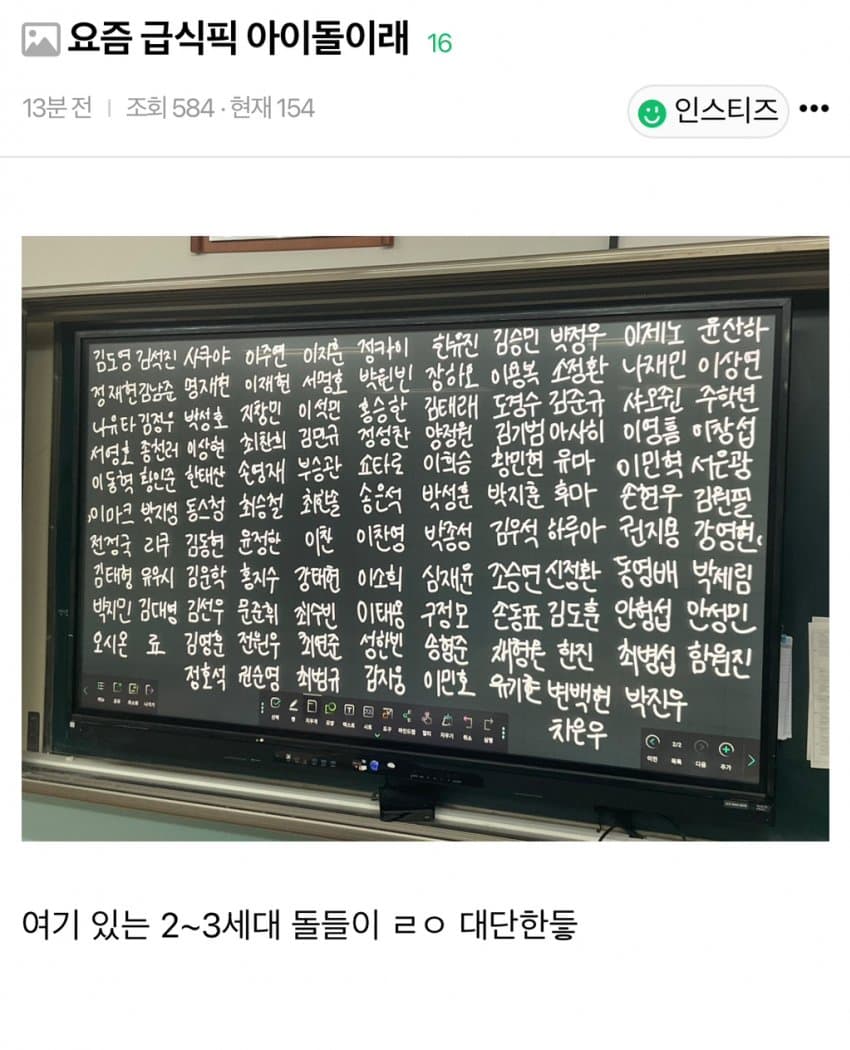 요즘 급식픽 아이돌이래 16
13분 전 | 조회 584 · 현재 154
인스티즈
김도영 김석진 사쿠야 이주연 이지훈 정카이 한유진 김승민 박정우 이제노 윤산하
정재현 김남준 명재현 이재현 서명호 박원빈 장하오 이용복 소정환 나재민 이상연
나유타 김정우 박성호 지창민 이석민 홍승한 김태래 도경수 김준규 샤오쥔 주학년
서영호 종천러 이상혁 최찬희 김민규 정성찬 양정원 김기범 아사히 이영흠 이창섭
이동혁 황인준 한태산 손영재 부승관 쇼타로 이희승 황민현 유마 이민혁 서은광
이마크 박지성 동스청 최승철 최한솔 송은석 박성훈 박지훈 후마 손현우 김원필
전정국 리쿠 김동현 윤정한 이찬 이찬영 박종성 김우석 하루아 권지용 강영현
김태형 유우시 김운학 홍지수 강태현 이소희 심재윤 조승연 신정환 동영배 박제림
박지민 김대영 김선우 문준휘 최수빈 이태용 구정모 손동표 김도훈 안형섭 안성민
오시온 료 김영훈 전원우 최연준 성한빈 송형준 채형원 한진 최병섭 함원진
정호석 권순영 최범규 김지웅 이민호 유기현 변백현 박진우
차은우
2/2
이전 목록 다음 추가
여기 있는 2~3세대 돌들이 ㄹㅇ 대단한듷